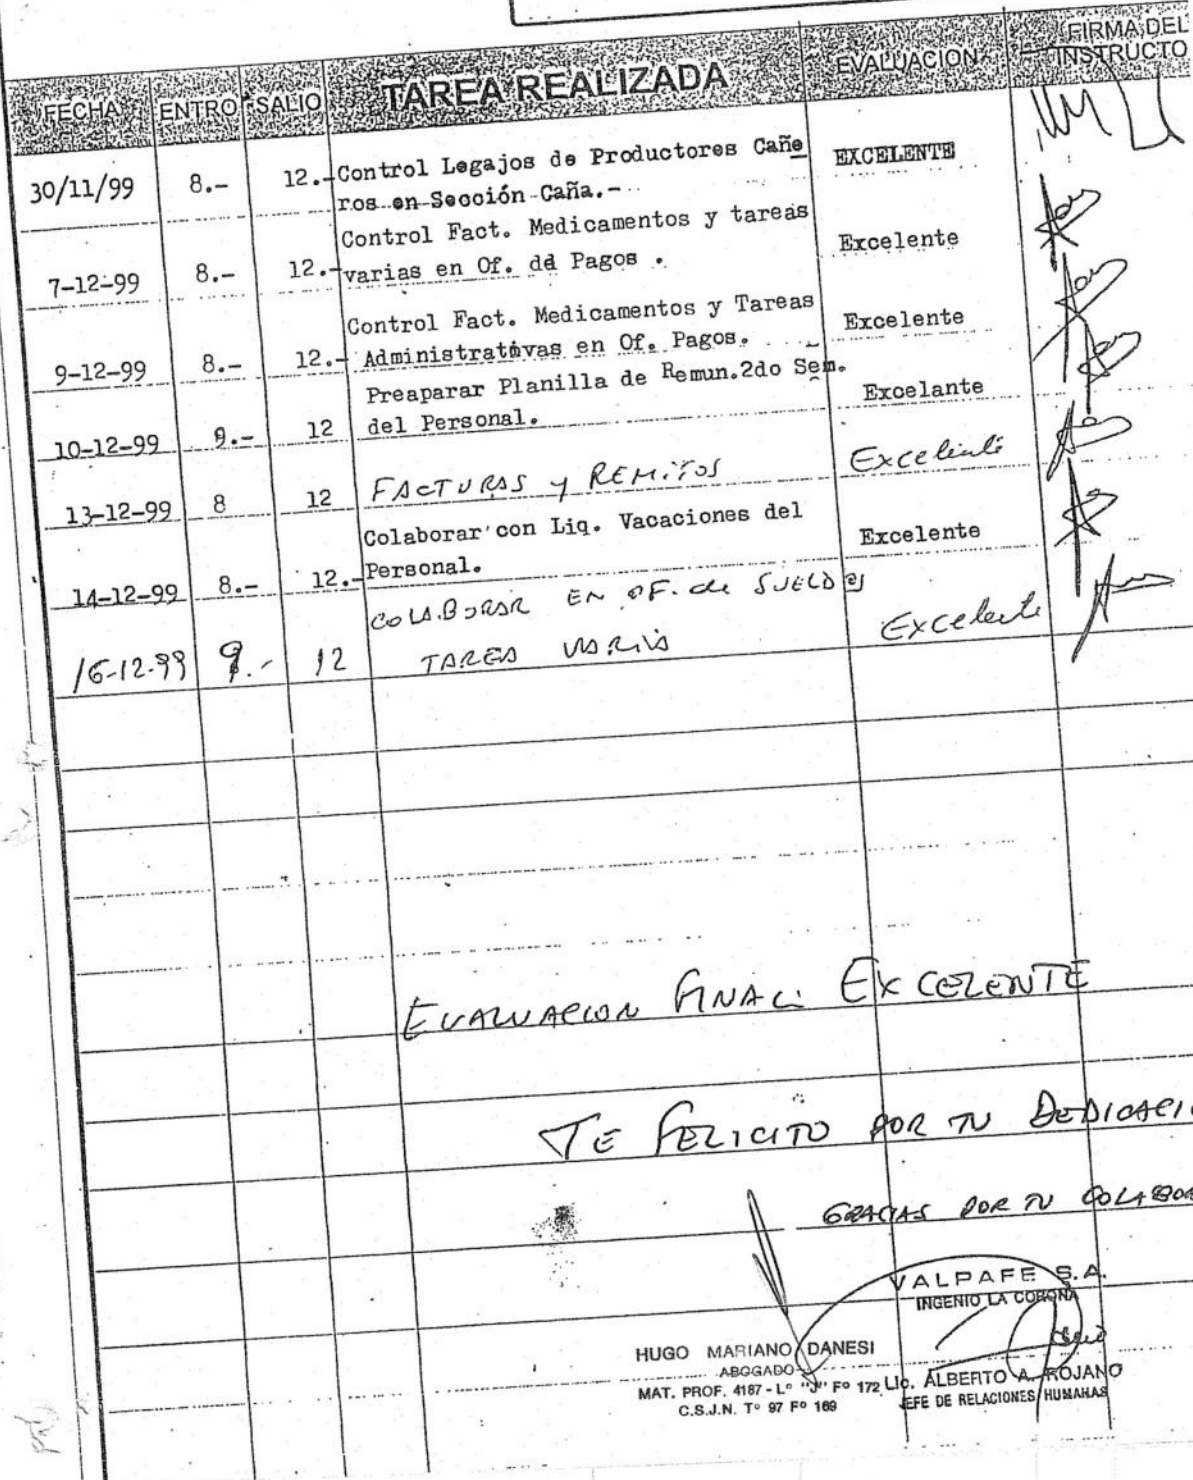 FECHA ENTRO SALIO TAREA REALIZADA EVALUACION FIRMA DEL
INSTRUCTO
30/11/99 8.- 12.- Control Legajos de Productores Cañe EXCELENTE
ros en Sección Caña.-
Control Fact. Medicamentos y tareas
7-12-99 8.- 12.- varias en Of. dd Pagos . Excelente
Control Fact. Medicamentos y Tareas
9-12-99 8.- 12.- Administratövas en Of. Pagos. Excelente
Preaparar Planilla de Remun.2do Sem.
10-12-99 9.- 12 del Personal. Excelante
13-12-99 8 12 FACTURAS y REMITOS Excelente
Colaborar con Liq. Vacaciones del
14-12-99 8.- 12.- Personal. Excelente
COLABORAR EN OF. de SUELDOS
16-12-99 9.- 12 TAREA VARIA Excelente
EVALUACION FINAL: EXCELENTE
TE FELICITO POR TU DEDICACI
GRACIAS POR TU COLABOR
VALPAFE S.A.
INGENIO LA CORONA
HUGO MARIANO DANESI
ABOGADO
MAT. PROF. 4187 - Lº "J" Fº 172
C.S.J.N. Tº 97 Fº 169
Lic. ALBERTO A. ROJANO
JEFE DE RELACIONES HUMANAS